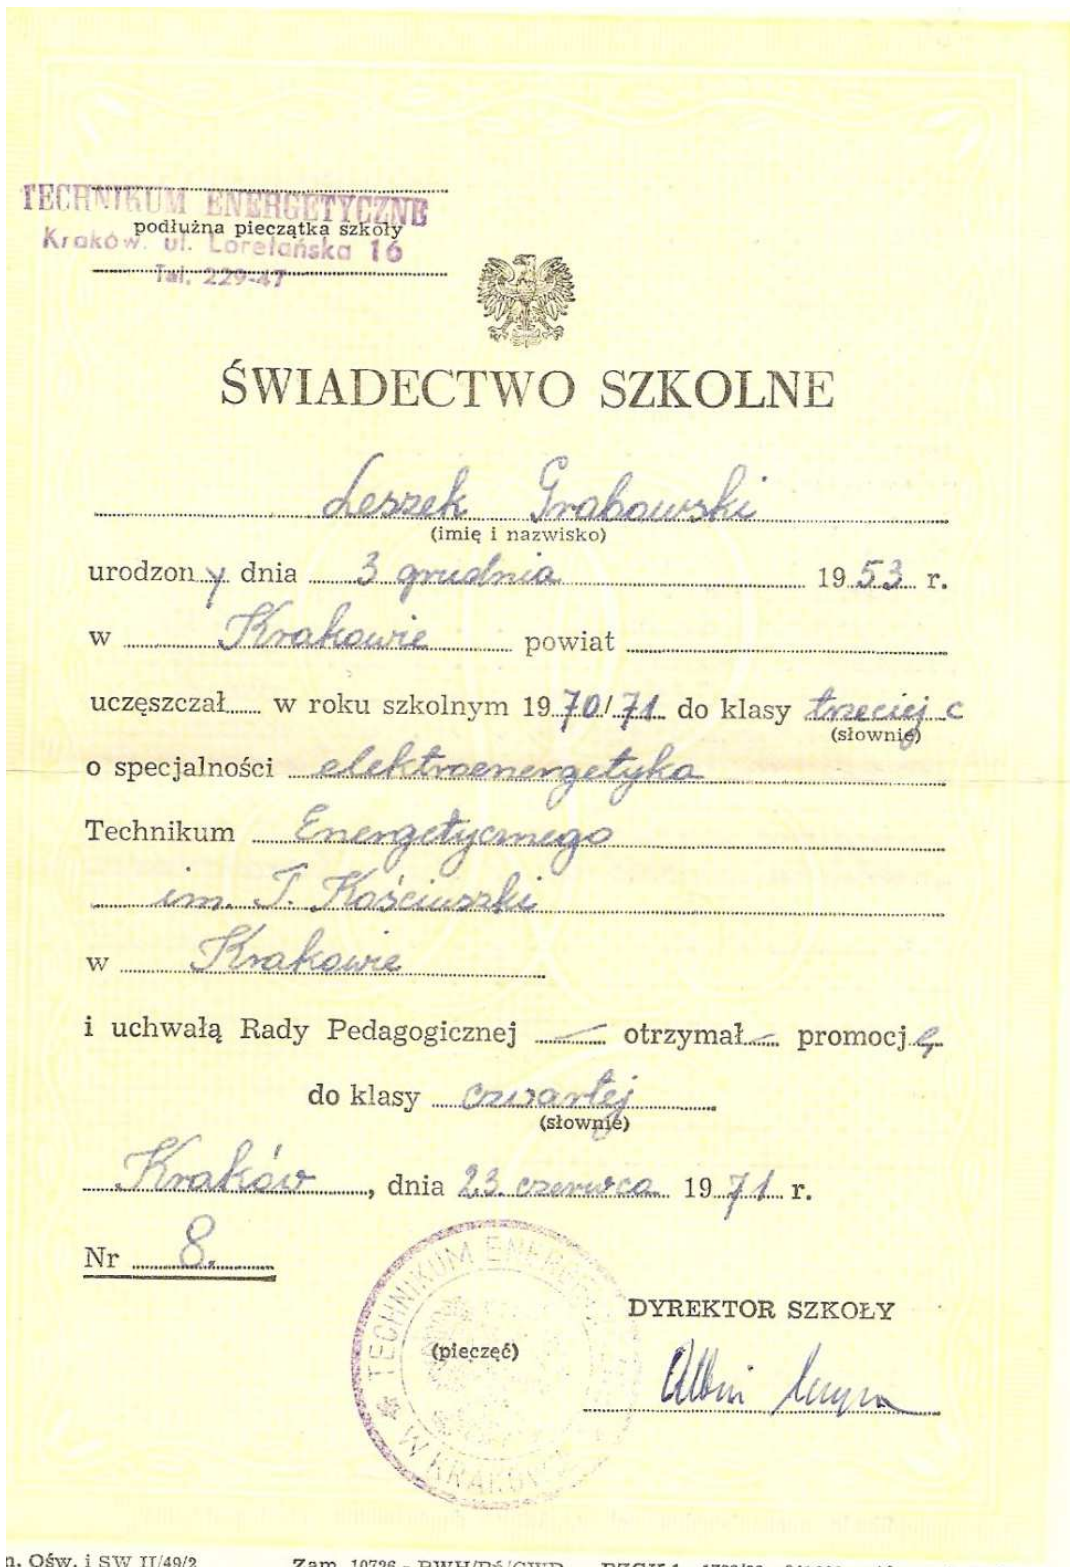 TECHNIKUM ENERGETYCZNE
podłużna pieczątka szkoły
Kraków. ul. Loretańska 16
Tel. 229-47
ŚWIADECTWO SZKOLNE
Leszek Grabowski
(imię i nazwisko)
urodzony dnia 3 grudnia 1953 r.
w Krakowie powiat
uczęszczał w roku szkolnym 1970/71 do klasy trzeciej c
(słownie)
o specjalności elektroenergetyka
Technikum Energetycznego
im. T. Kościuszki
w Krakowie
i uchwałą Rady Pedagogicznej — otrzymał — promocję
do klasy czwartej
(słownie)
Kraków, dnia 23. czerwca 1971 r.
Nr 8.
TECHNIKUM
W KRAKOWIE
(pieczęć)
DYREKTOR SZKOŁY
Albin
Ośw. i SW II/49/2 Zam. 10726